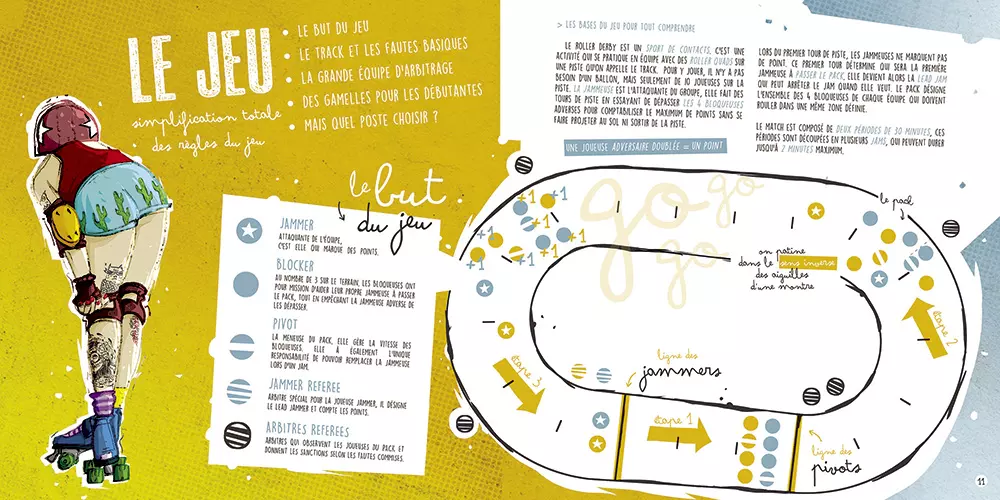 LE JEU
simplification totale
des règles du jeu
• LE BUT DU JEU
• LE TRACK ET LES FAUTES BASIQUES
• LA GRANDE ÉQUIPE D'ARBITRAGE
• DES GAMELLES POUR LES DÉBUTANTES
• MAIS QUEL POSTE CHOISIR ?
le but
du jeu
JAMMER
ATTAQUANTE DE L'ÉQUIPE,
C'EST ELLE QUI MARQUE DES POINTS.
BLOCKER
AU NOMBRE DE 3 SUR LE TERRAIN, LES BLOQUEUSES ONT
POUR MISSION D'AIDER LEUR PROPRE JAMMEUSE À PASSER
LE PACK, TOUT EN EMPÊCHANT LA JAMMEUSE ADVERSE DE
LES DÉPASSER.
PIVOT
LA MENEUSE DU PACK, ELLE GÈRE LA VITESSE DES
BLOQUEUSES. ELLE À ÉGALEMENT L'UNIQUE
RESPONSABILITÉ DE POUVOIR REMPLACER LA JAMMEUSE
LORS D'UN JAM.
JAMMER REFEREE
ARBITRE SPÉCIAL POUR LA JOUEUSE JAMMER, IL DÉSIGNE
LE LEAD JAMMER ET COMPTE LES POINTS.
ARBITRES REFEREES
ARBITRES QUI OBSERVENT LES JOUEUSES DU PACK ET
DONNENT LES SANCTIONS SELON LES FAUTES COMMISES.
> LES BASES DU JEU POUR TOUT COMPRENDRE
LE ROLLER DERBY EST UN SPORT DE CONTACTS. C'EST UNE
ACTIVITÉ QUI SE PRATIQUE EN ÉQUIPE AVEC DES ROLLER QUADS SUR
UNE PISTE QU'ON APPELLE LE TRACK. POUR Y JOUER, IL N'Y A PAS
BESOIN D'UN BALLON, MAIS SEULEMENT DE 10 JOUEUSES SUR LA
PISTE. LA JAMMEUSE EST L'ATTAQUANTE DU GROUPE, ELLE FAIT DES
TOURS DE PISTE EN ESSAYANT DE DÉPASSER LES 4 BLOQUEUSES
ADVERSES POUR COMPTABILISER LE MAXIMUM DE POINTS SANS SE
FAIRE PROJETER AU SOL NI SORTIR DE LA PISTE.
UNE JOUEUSE ADVERSAIRE DOUBLÉE = UN POINT
LORS DU PREMIER TOUR DE PISTE, LES JAMMEUSES NE MARQUENT PAS
DE POINT. CE PREMIER TOUR DÉTERMINE QUI SERA LA PREMIÈRE
JAMMEUSE À PASSER LE PACK, ELLE DEVIENT ALORS LA LEAD JAM
QUI PEUT ARRÊTER LE JAM QUAND ELLE VEUT. LE PACK DÉSIGNE
L'ENSEMBLE DES 4 BLOQUEUSES DE CHAQUE ÉQUIPE QUI DOIVENT
ROULER DANS UNE MÊME ZONE DÉFINIE.
LE MATCH EST COMPOSÉ DE DEUX PÉRIODES DE 30 MINUTES, CES
PÉRIODES SONT DÉCOUPÉES EN PLUSIEURS JAMS, QUI PEUVENT DURER
JUSQU'À 2 MINUTES MAXIMUM.
+1
+1
+1
+1
+1
+1
go go
go
le pack
on patine
dans le sens inverse
des aiguilles
d'une montre
étape 2
étape 3
ligne des
jammers
étape 1
ligne des
pivots
11